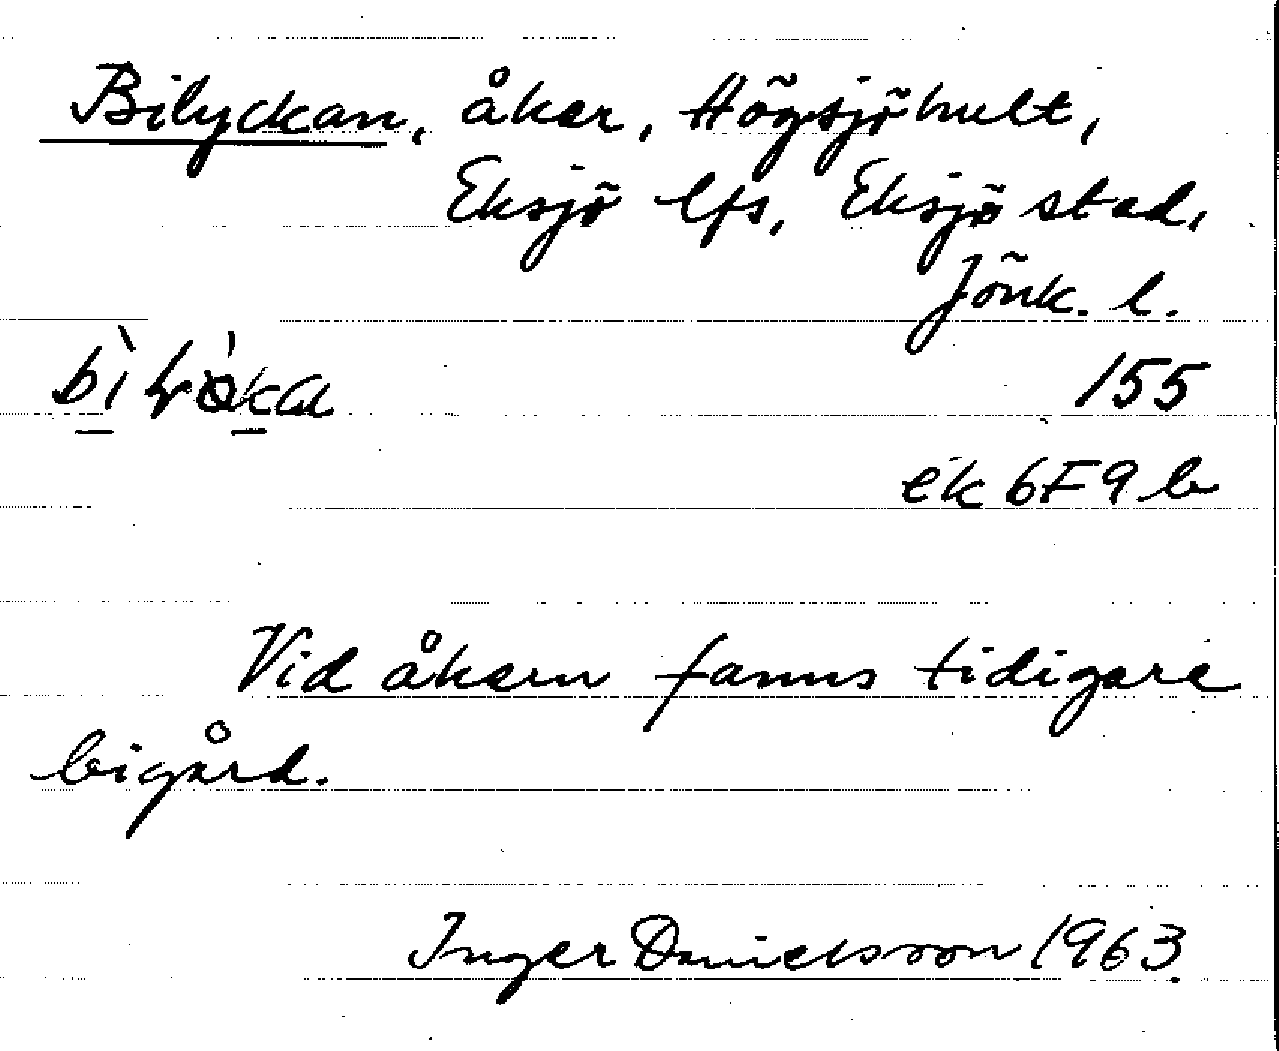 Bilyckan, åker, Högsjöhult,
Eksjö lfs, Eksjö stad,
Jönk. l.
155
ek 6F9b
Vid åkern fanns tidigare
bigård.
Inger Danielsson 1963.